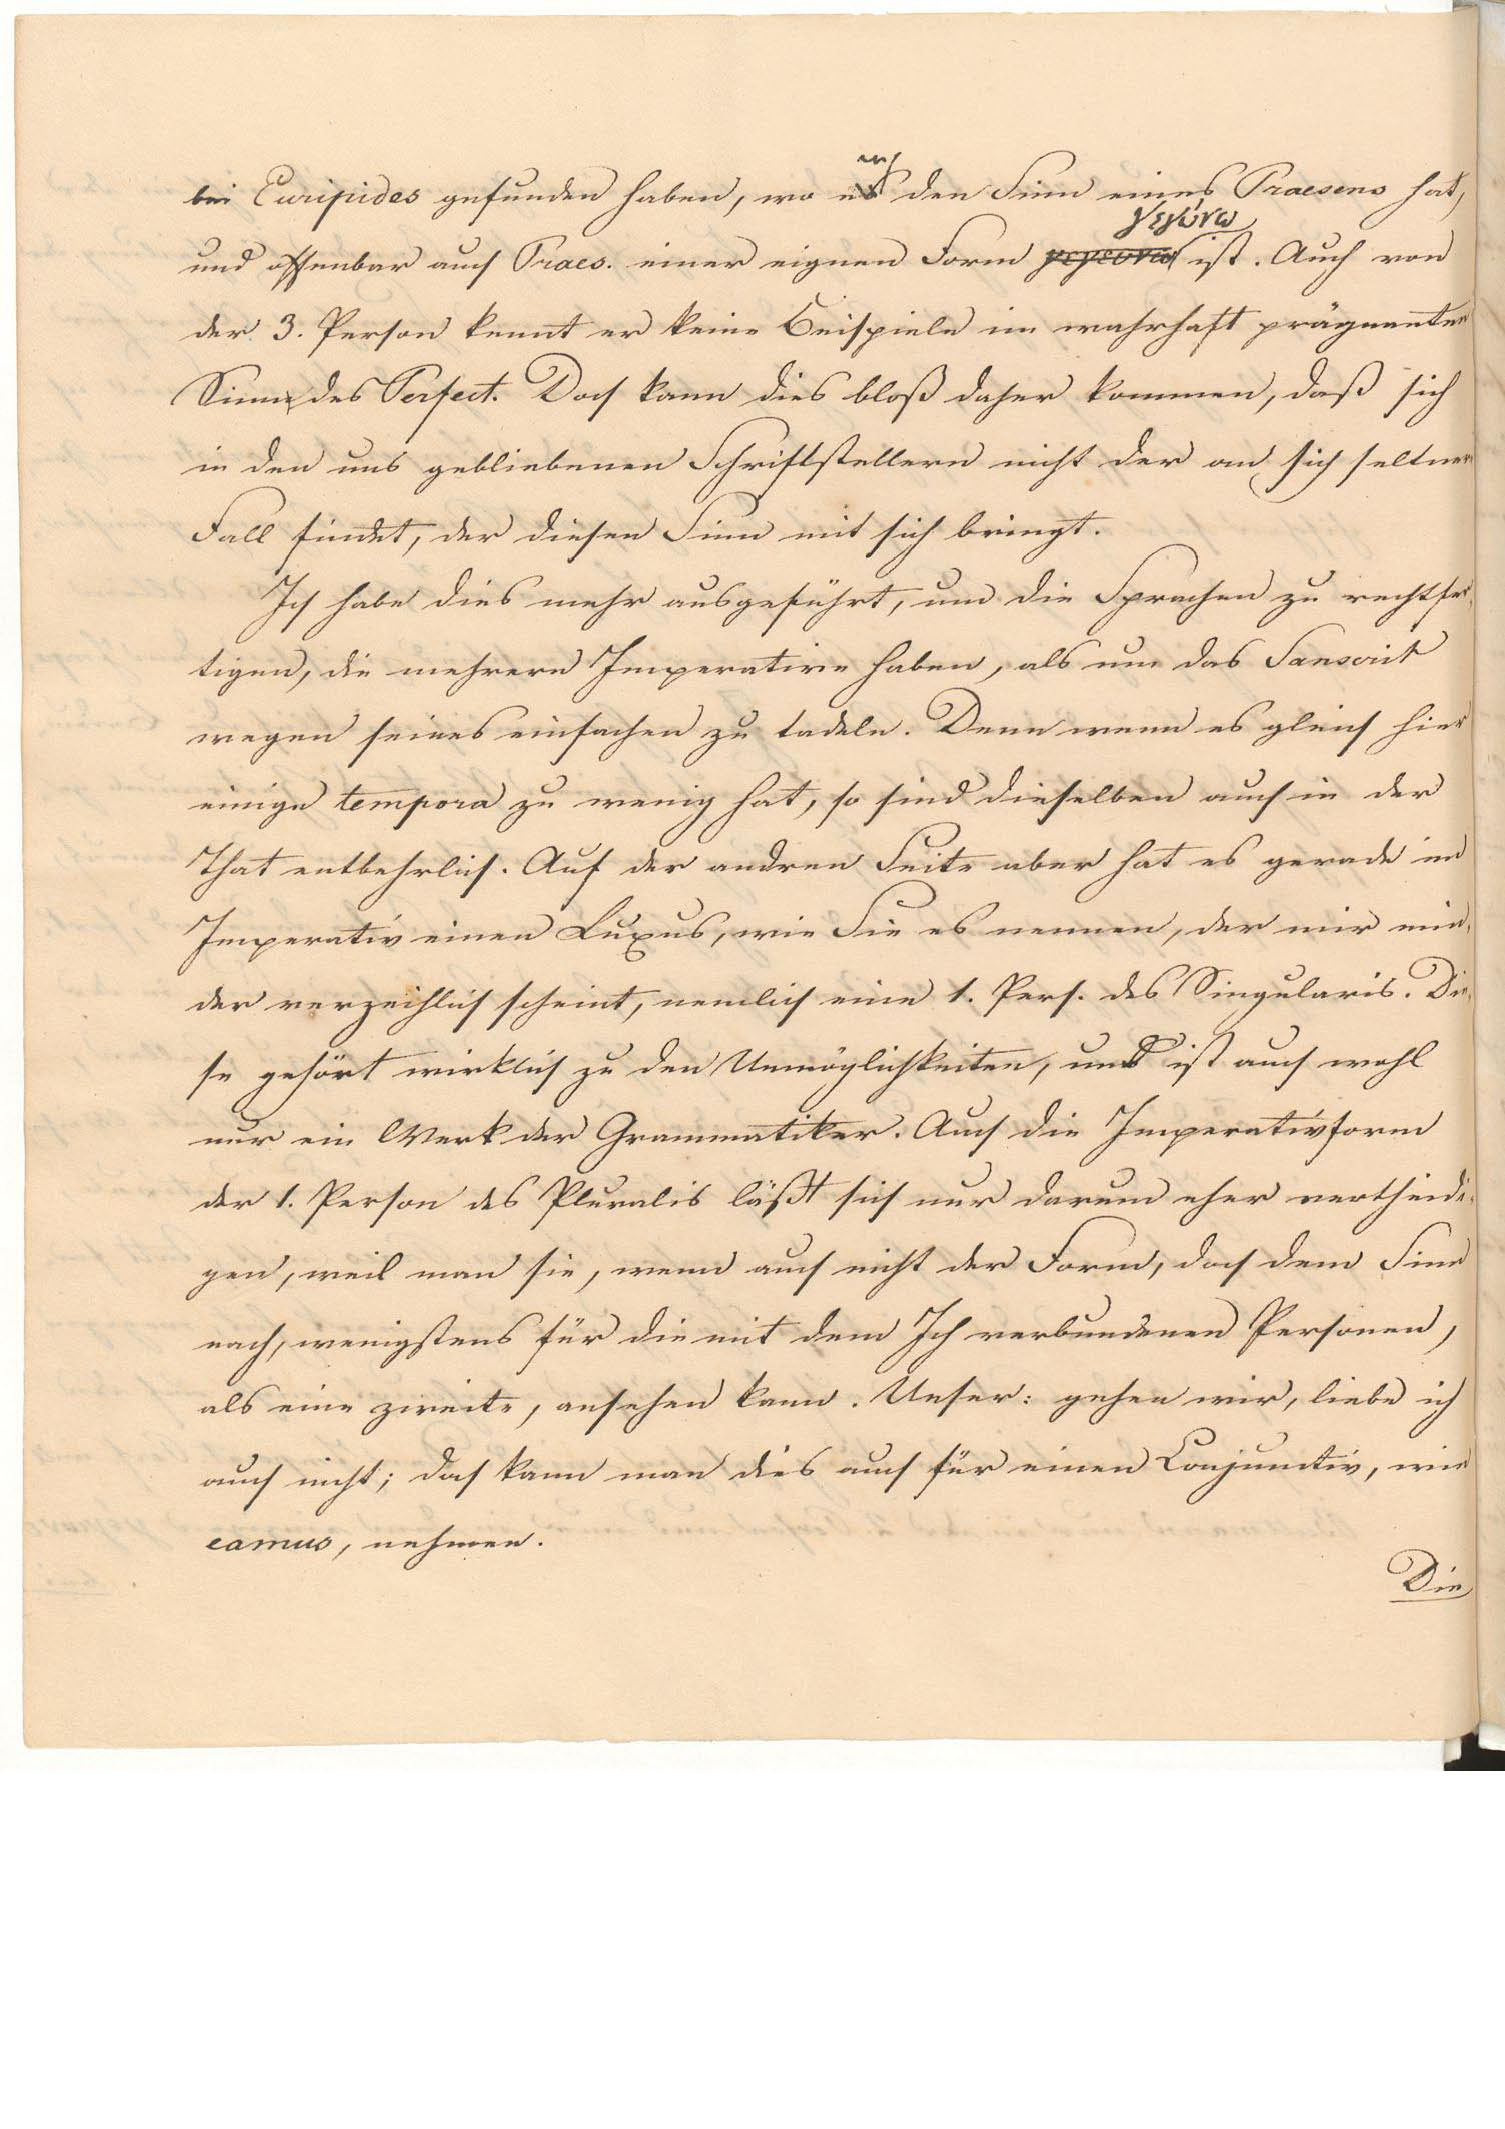 bei Euripides gefunden haben, wo es den Sinn eines Praesens hat,
γεγώνω
und offenbar auch Praes. einer eignen Form ist. Auch von
der 3. Person kennt er keine Beispiele im wahrhaft prägnanten
Sinne des Perfect. Doch kann dies bloß daher kommen, daß sich
in den uns gebliebenen Schriftstellern nicht der an sich seltne
Fall findet, der diesen Sinn mit sich bringt.
Ich habe dies mehr ausgeführt, um die Sprachen zu rechtfer-
tigen, die mehrere Imperative haben, als um das Sanscrit
wegen seines einfachen zu tadeln. Denn wenn es gleich hier
einige tempora zu wenig hat, so sind dieselben auch in der
That entbehrlich. Auf der andren Seite aber hat es gerade im
Imperativ einen Luxus, wie Sie es nennen, der mir min-
der verzeihlich scheint, nemlich eine 1. Pers. des Singularis. Die-
se gehört wirklich zu den Unmöglichkeiten, und ist auch wohl
nur ein Werk der Grammatiker. Auch die Imperativform
der 1. Person des Pluralis läßt sich nur darum eher vertheidi-
gen, weil man sie, wenn auch nicht der Form, doch dem Sinn
nach, wenigstens für die mit dem Ich verbundenen Personen,
als eine zweite, ansehen kann. Unser: gehen wir, liebe ich
auch nicht; doch kann man dies auch für einen Conjunctiv, wie
eamus, nehmen.
Die